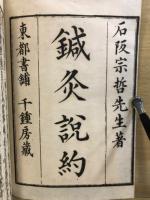 石阪宗哲先生著
鍼灸説約
東都書鋪 千鍾房蔵